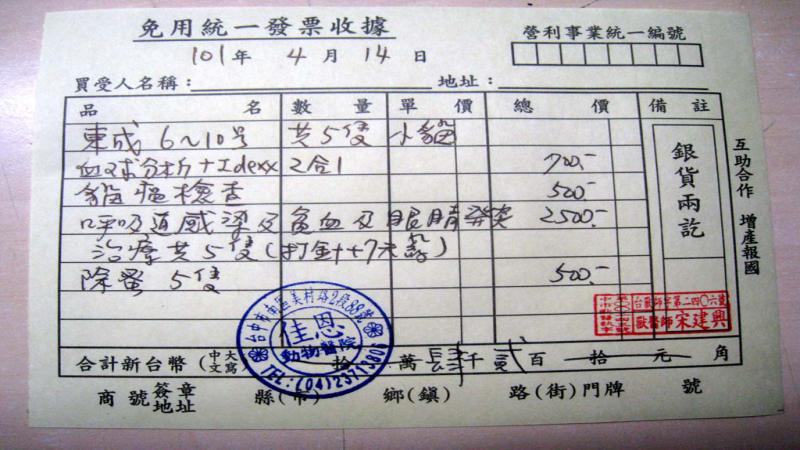 免用統一發票收據
營利事業統一編號
101年 4月 14日
買受人名稱： 地址：
品名 數量 單價 總價 備註
東成 6~10号 共5隻 小貓
血球分析+Idexx 2合1 700.-
貓瘟檢查 500.-
呼吸道感染及貧血及眼睛發炎 2500.-
治療共5隻(打針+7天藥)
除蚤 5隻 500.-
銀貨兩訖
互助合作 增產報國
台中市南區美村路2段88號
佳恩
動物醫院
TEL:(04)23713806
台獸師字第二四〇六號
獸醫師 宋建興
合計新台幣(中文大寫) 拾 萬 肆仟 貳百 拾 元 角
商號簽章地址 縣(市) 鄉(鎮) 路(街)門牌 號